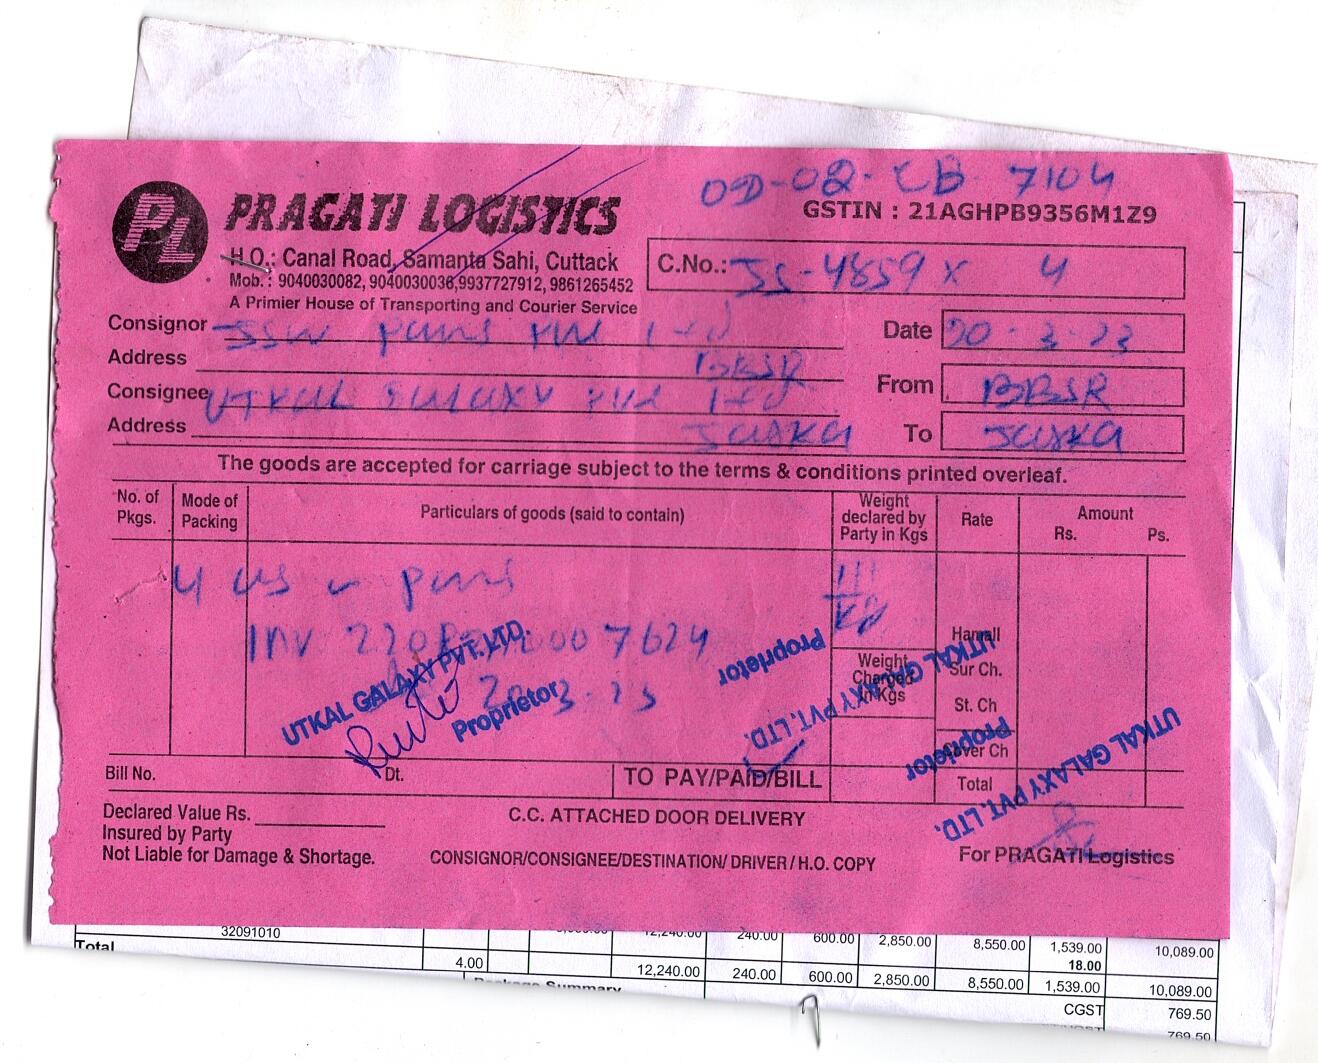 OD-02-CB 7104
PL
PRAGATI LOGISTICS
GSTIN : 21AGHPB9356M1Z9
H.O.: Canal Road, Samanta Sahi, Cuttack
Mob. : 9040030082, 9040030036,9937727912, 9861265452
A Primier House of Transporting and Courier Service
C.No.: JS-4859 x 4
Consignor JSW Pvt Ltd
Date 20-3-23
Address BBSR
From BBSR
Consignee UTKAL GALAXY Pvt Ltd
Address
To
The goods are accepted for carriage subject to the terms & conditions printed overleaf.
No. of Pkgs. Mode of Packing Particulars of goods (said to contain) Weight declared by Party in Kgs Rate Amount Rs. Ps.
4
INV 7624
20-3-23
Hamali
Weight Charged in Kgs
Sur Ch.
St. Ch
UTKAL GALAXY PVT. LTD.
Proprietor
UTKAL GALAXY PVT. LTD.
Proprietor
UTKAL GALAXY PVT. LTD.
Proprietor
Bill No. Dt. TO PAY/PAID/BILL Total
Declared Value Rs.
C.C. ATTACHED DOOR DELIVERY
Insured by Party
Not Liable for Damage & Shortage.
CONSIGNOR/CONSIGNEE/DESTINATION/ DRIVER / H.O. COPY
For PRAGATI Logistics
32091010 12,240.00 240.00 600.00 2,850.00 8,550.00 1,539.00 10,089.00
18.00
Total 4.00 12,240.00 240.00 600.00 2,850.00 8,550.00 1,539.00 10,089.00
Package Summary
CGST 769.50
769.50